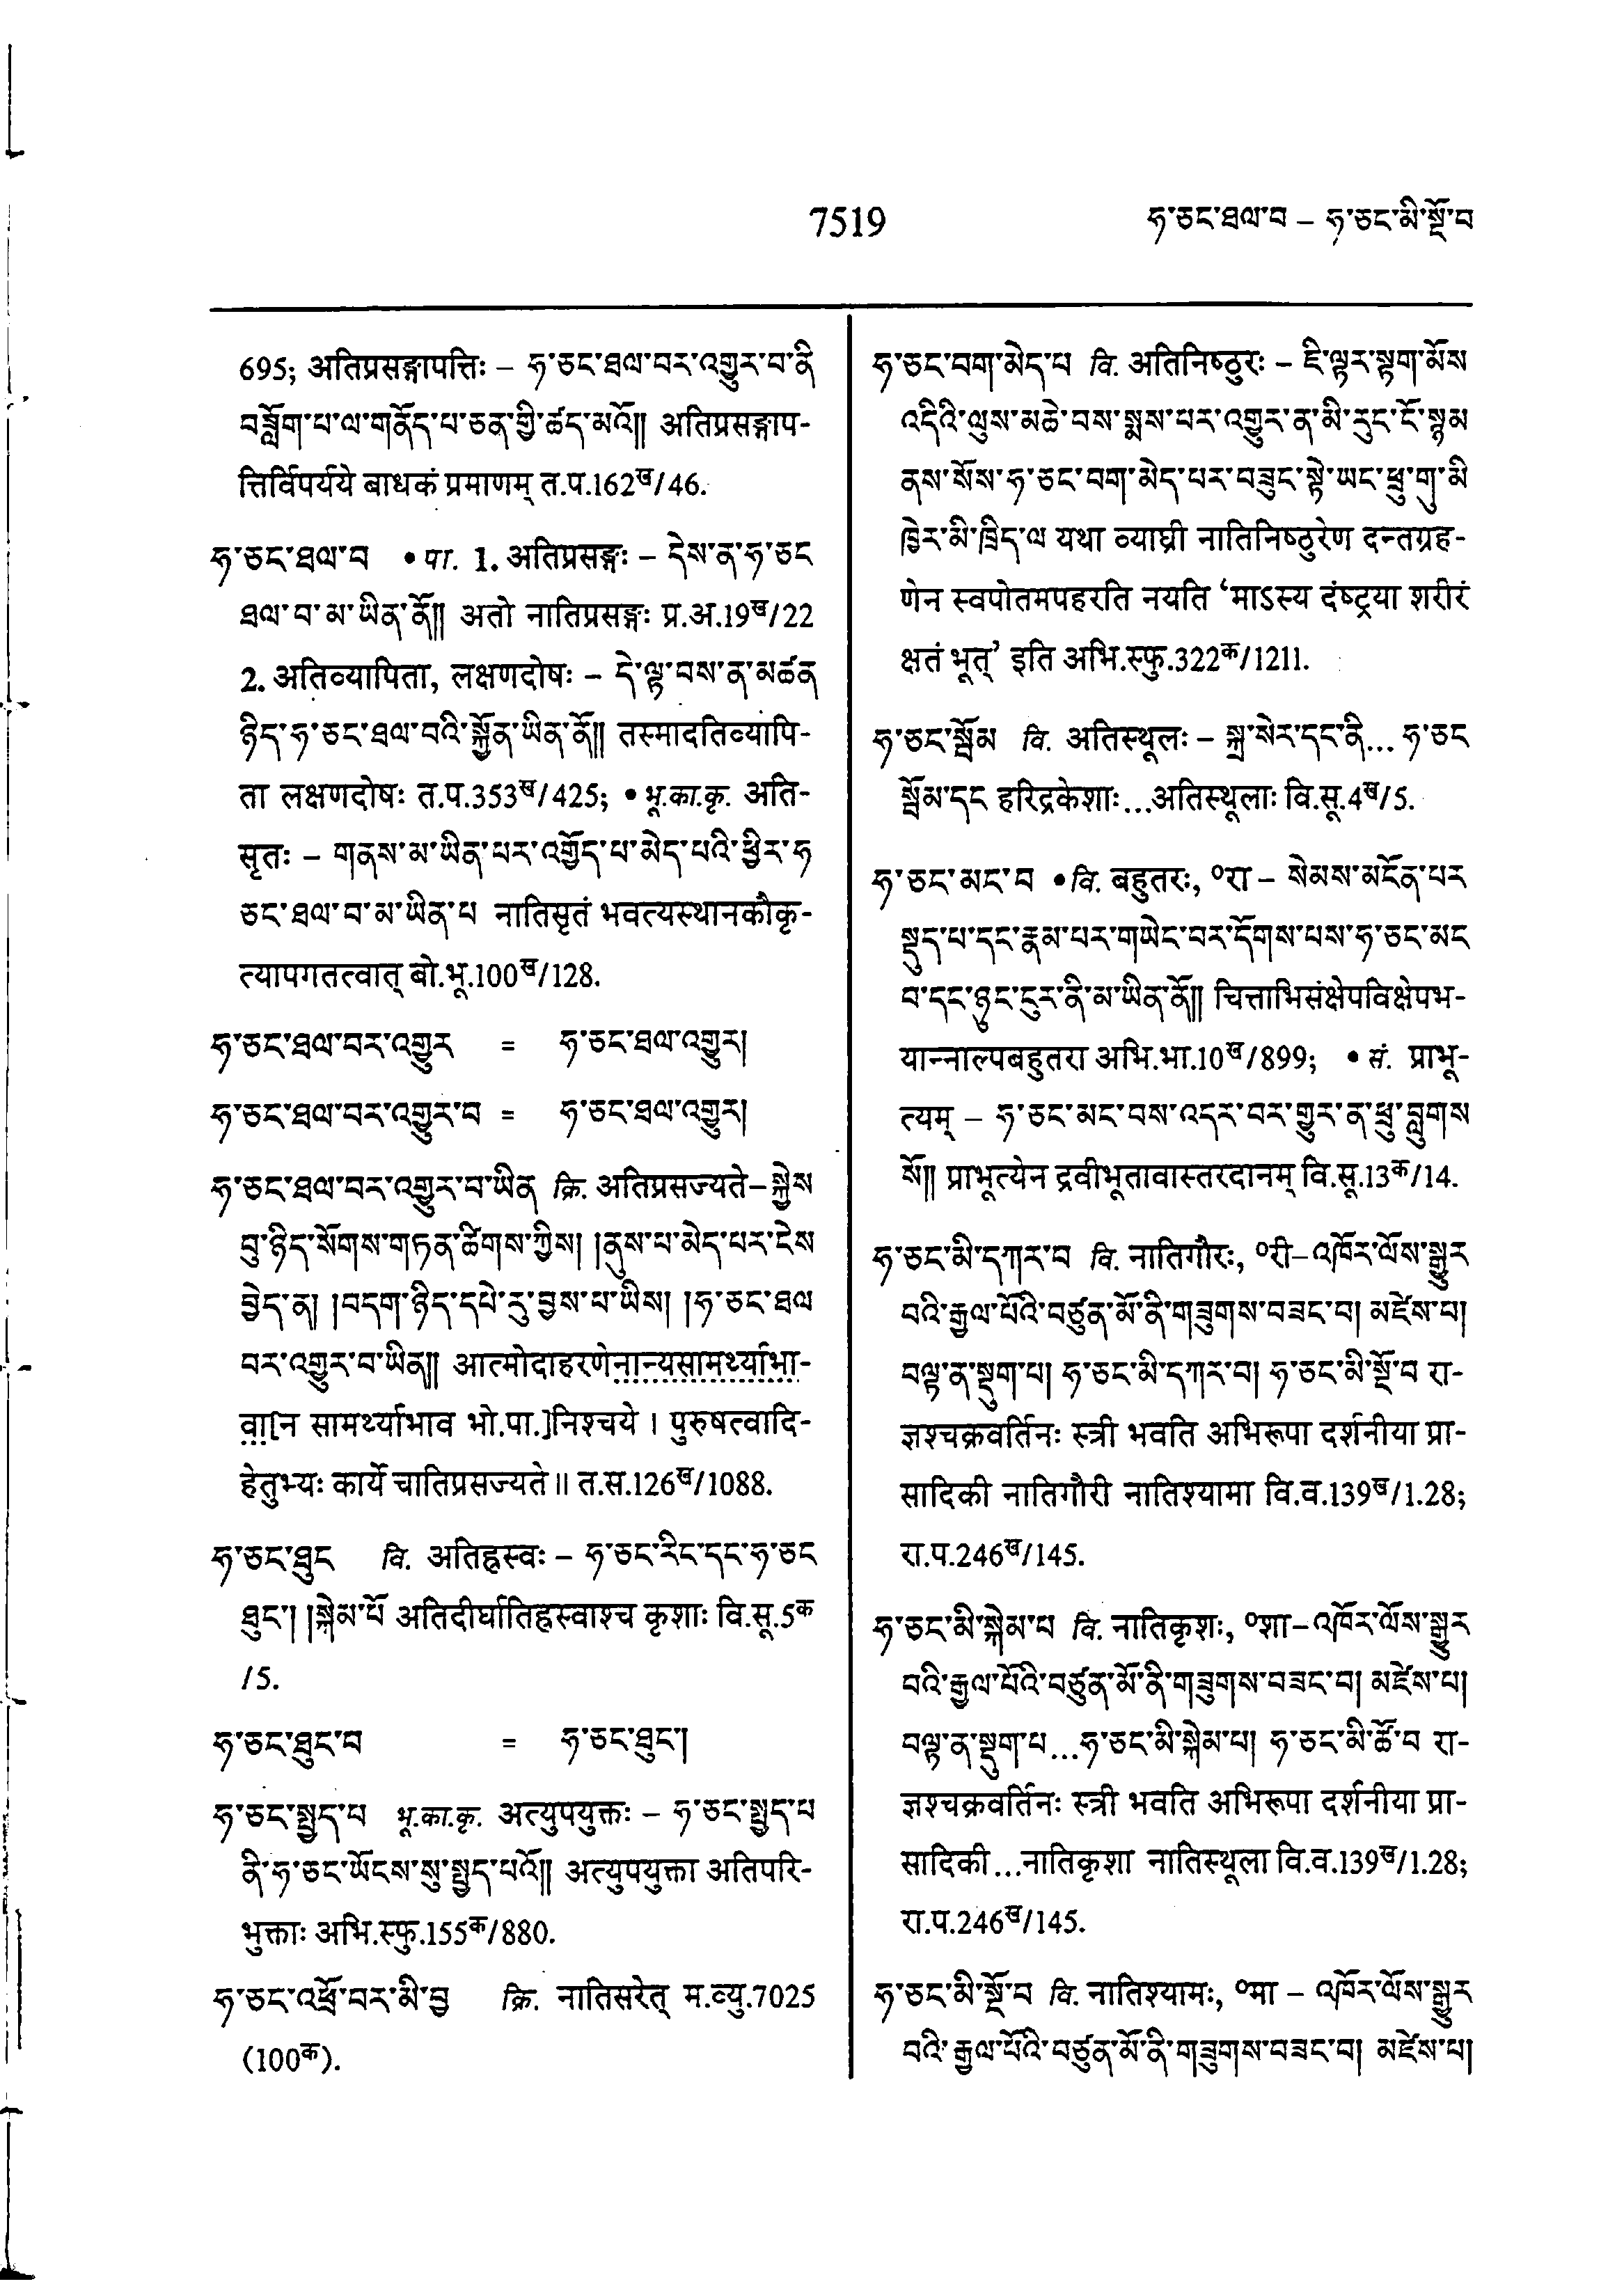 7519
ཧ་ཅང་ཐལ་བ – ཧ་ཅང་མི་སྔོ་བ
695; अतिप्रसङ्गापत्तिः – ཧ་ཅང་ཐལ་བར་འགྱུར་བ་ནི
བཟློག་པ་ལ་གནོད་པ་ཅན་གྱི་ཚད་མའོ།། अतिप्रसङ्गाप-
त्तिर्विपर्यये बाधकं प्रमाणम् त.प.162ख/46.
ཧ་ཅང་ཐལ་བ • पा. 1. अतिप्रसङ्गः – དེས་ན་ཧ་ཅང
ཐལ་བ་མ་ཡིན་ནོ།། अतो नातिप्रसङ्गः प्र.अ.19ख/22
2. अतिव्यापिता, लक्षणदोषः – དེ་ལྟ་བས་ན་མཚན
ཉིད་ཧ་ཅང་ཐལ་བའི་སྐྱོན་ཡིན་ནོ།། तस्मादतिव्यापि-
ता लक्षणदोषः त.प.353ख/425; • भू.का.कृ. अति-
सृतः – གནས་མ་ཡིན་པར་འགྱོད་པ་མེད་པའི་ཕྱིར་ཧ
ཅང་ཐལ་བ་མ་ཡིན་པ नातिसृतं भवत्यस्थानकौकृ-
त्यापगतत्वात् बो.भू.100ख/128.
ཧ་ཅང་ཐལ་བར་འགྱུར = ཧ་ཅང་ཐལ་འགྱུར།
ཧ་ཅང་ཐལ་བར་འགྱུར་བ = ཧ་ཅང་ཐལ་འགྱུར།
ཧ་ཅང་ཐལ་བར་འགྱུར་བ་ཡིན क्रि. अतिप्रसज्यते – སྐྱེས
བུ་ཉིད་སོགས་གཏན་ཚིགས་ཀྱིས། །ནུས་པ་མེད་པར་ངེས
བྱེད་ན། །བདག་ཉིད་དཔེ་རུ་བྱས་པ་ཡིས། །ཧ་ཅང་ཐལ
བར་འགྱུར་བ་ཡིན།། आत्मोदाहरणेनान्यसामर्थ्याभा-
वा[न सामर्थ्याभाव भो.पा.]निश्चये । पुरुषत्वादि-
हेतुभ्यः कार्ये चातिप्रसज्यते ॥ त.स.126ख/1088.
ཧ་ཅང་ཐུང वि. अतिह्रस्वः – ཧ་ཅང་རིང་དང་ཧ་ཅང
ཐུང་། །སྐེམ་པོ अतिदीर्घातिह्रस्वाश्च कृशाः वि.सू.5क
/5.
ཧ་ཅང་ཐུང་བ = ཧ་ཅང་ཐུང་།
ཧ་ཅང་སྤྱད་པ भू.का.कृ. अत्युपयुक्तः – ཧ་ཅང་སྤྱད་པ
ནི་ཧ་ཅང་ཡོངས་སུ་སྤྱད་པའོ།། अत्युपयुक्ता अतिपरि-
भुक्ताः अभि.स्फु.155क/880.
ཧ་ཅང་འཕྲོ་བར་མི་བྱ क्रि. नातिसरेत् म.व्यु.7025
(100क).
ཧ་ཅང་བག་མེད་པ वि. अतिनिष्ठुरः – ཇི་ལྟར་སྟག་མོས
འདིའི་ལུས་མཆེ་བས་སྨས་པར་འགྱུར་ན་མི་རུང་ངོ་སྙམ
ནས་སོས་ཧ་ཅང་བག་མེད་པར་བཟུང་སྟེ་ཡང་ཕྲུ་གུ་མི
ཁྱེར་མི་ཁྲིད་ལ यथा व्याघ्री नातिनिष्ठुरेण दन्तग्रह-
णेन स्वपोतमपहरति नयति ‘माऽस्य दंष्ट्रया शरीरं
क्षतं भूत्’ इति अभि.स्फु.322क/1211.
ཧ་ཅང་སྦོམ वि. अतिस्थूलः – སྐྲ་སེར་དང་ནི... ཧ་ཅང
སྦོམ་དང हरिद्रकेशाः...अतिस्थूलाः वि.सू.4ख/5.
ཧ་ཅང་མང་བ • वि. बहुतरः, ०रा – སེམས་མངོན་པར
སྡུད་པ་དང་རྣམ་པར་གཡེང་བར་དོགས་པས་ཧ་ཅང་མང
བ་དང་ཉུང་ངུར་ནི་མ་ཡིན་ནོ།། चित्ताभिसंक्षेपविक्षेपभ-
यान्नाल्पबहुतरा अभि.भा.10ख/899; • सं. प्राभू-
त्यम् – ཧ་ཅང་མང་བས་འདར་བར་གྱུར་ན་ཕྲུ་བླུགས
སོ།། प्राभूत्येन द्रवीभूतावास्तरदानम् वि.सू.13क/14.
ཧ་ཅང་མི་དཀར་བ वि. नातिगौरः, ०री – འཁོར་ལོས་སྒྱུར
བའི་རྒྱལ་པོའི་བཙུན་མོ་ནི་གཟུགས་བཟང་བ། མཛེས་པ།
བལྟ་ན་སྡུག་པ། ཧ་ཅང་མི་དཀར་བ། ཧ་ཅང་མི་སྔོ་བ रा-
ज्ञश्चक्रवर्तिनः स्त्री भवति अभिरूपा दर्शनीया प्रा-
सादिकी नातिगौरी नातिश्यामा वि.व.139ख/1.28;
रा.प.246ख/145.
ཧ་ཅང་མི་སྐེམ་པ वि. नातिकृशः, ०शा – འཁོར་ལོས་སྒྱུར
བའི་རྒྱལ་པོའི་བཙུན་མོ་ནི་གཟུགས་བཟང་བ། མཛེས་པ།
བལྟ་ན་སྡུག་པ...ཧ་ཅང་མི་སྐེམ་པ། ཧ་ཅང་མི་ཚོ་བ रा-
ज्ञश्चक्रवर्तिनः स्त्री भवति अभिरूपा दर्शनीया प्रा-
सादिकी...नातिकृशा नातिस्थूला वि.व.139ख/1.28;
रा.प.246ख/145.
ཧ་ཅང་མི་སྔོ་བ वि. नातिश्यामः, ०मा – འཁོར་ལོས་སྒྱུར
བའི་རྒྱལ་པོའི་བཙུན་མོ་ནི་གཟུགས་བཟང་བ། མཛེས་པ།